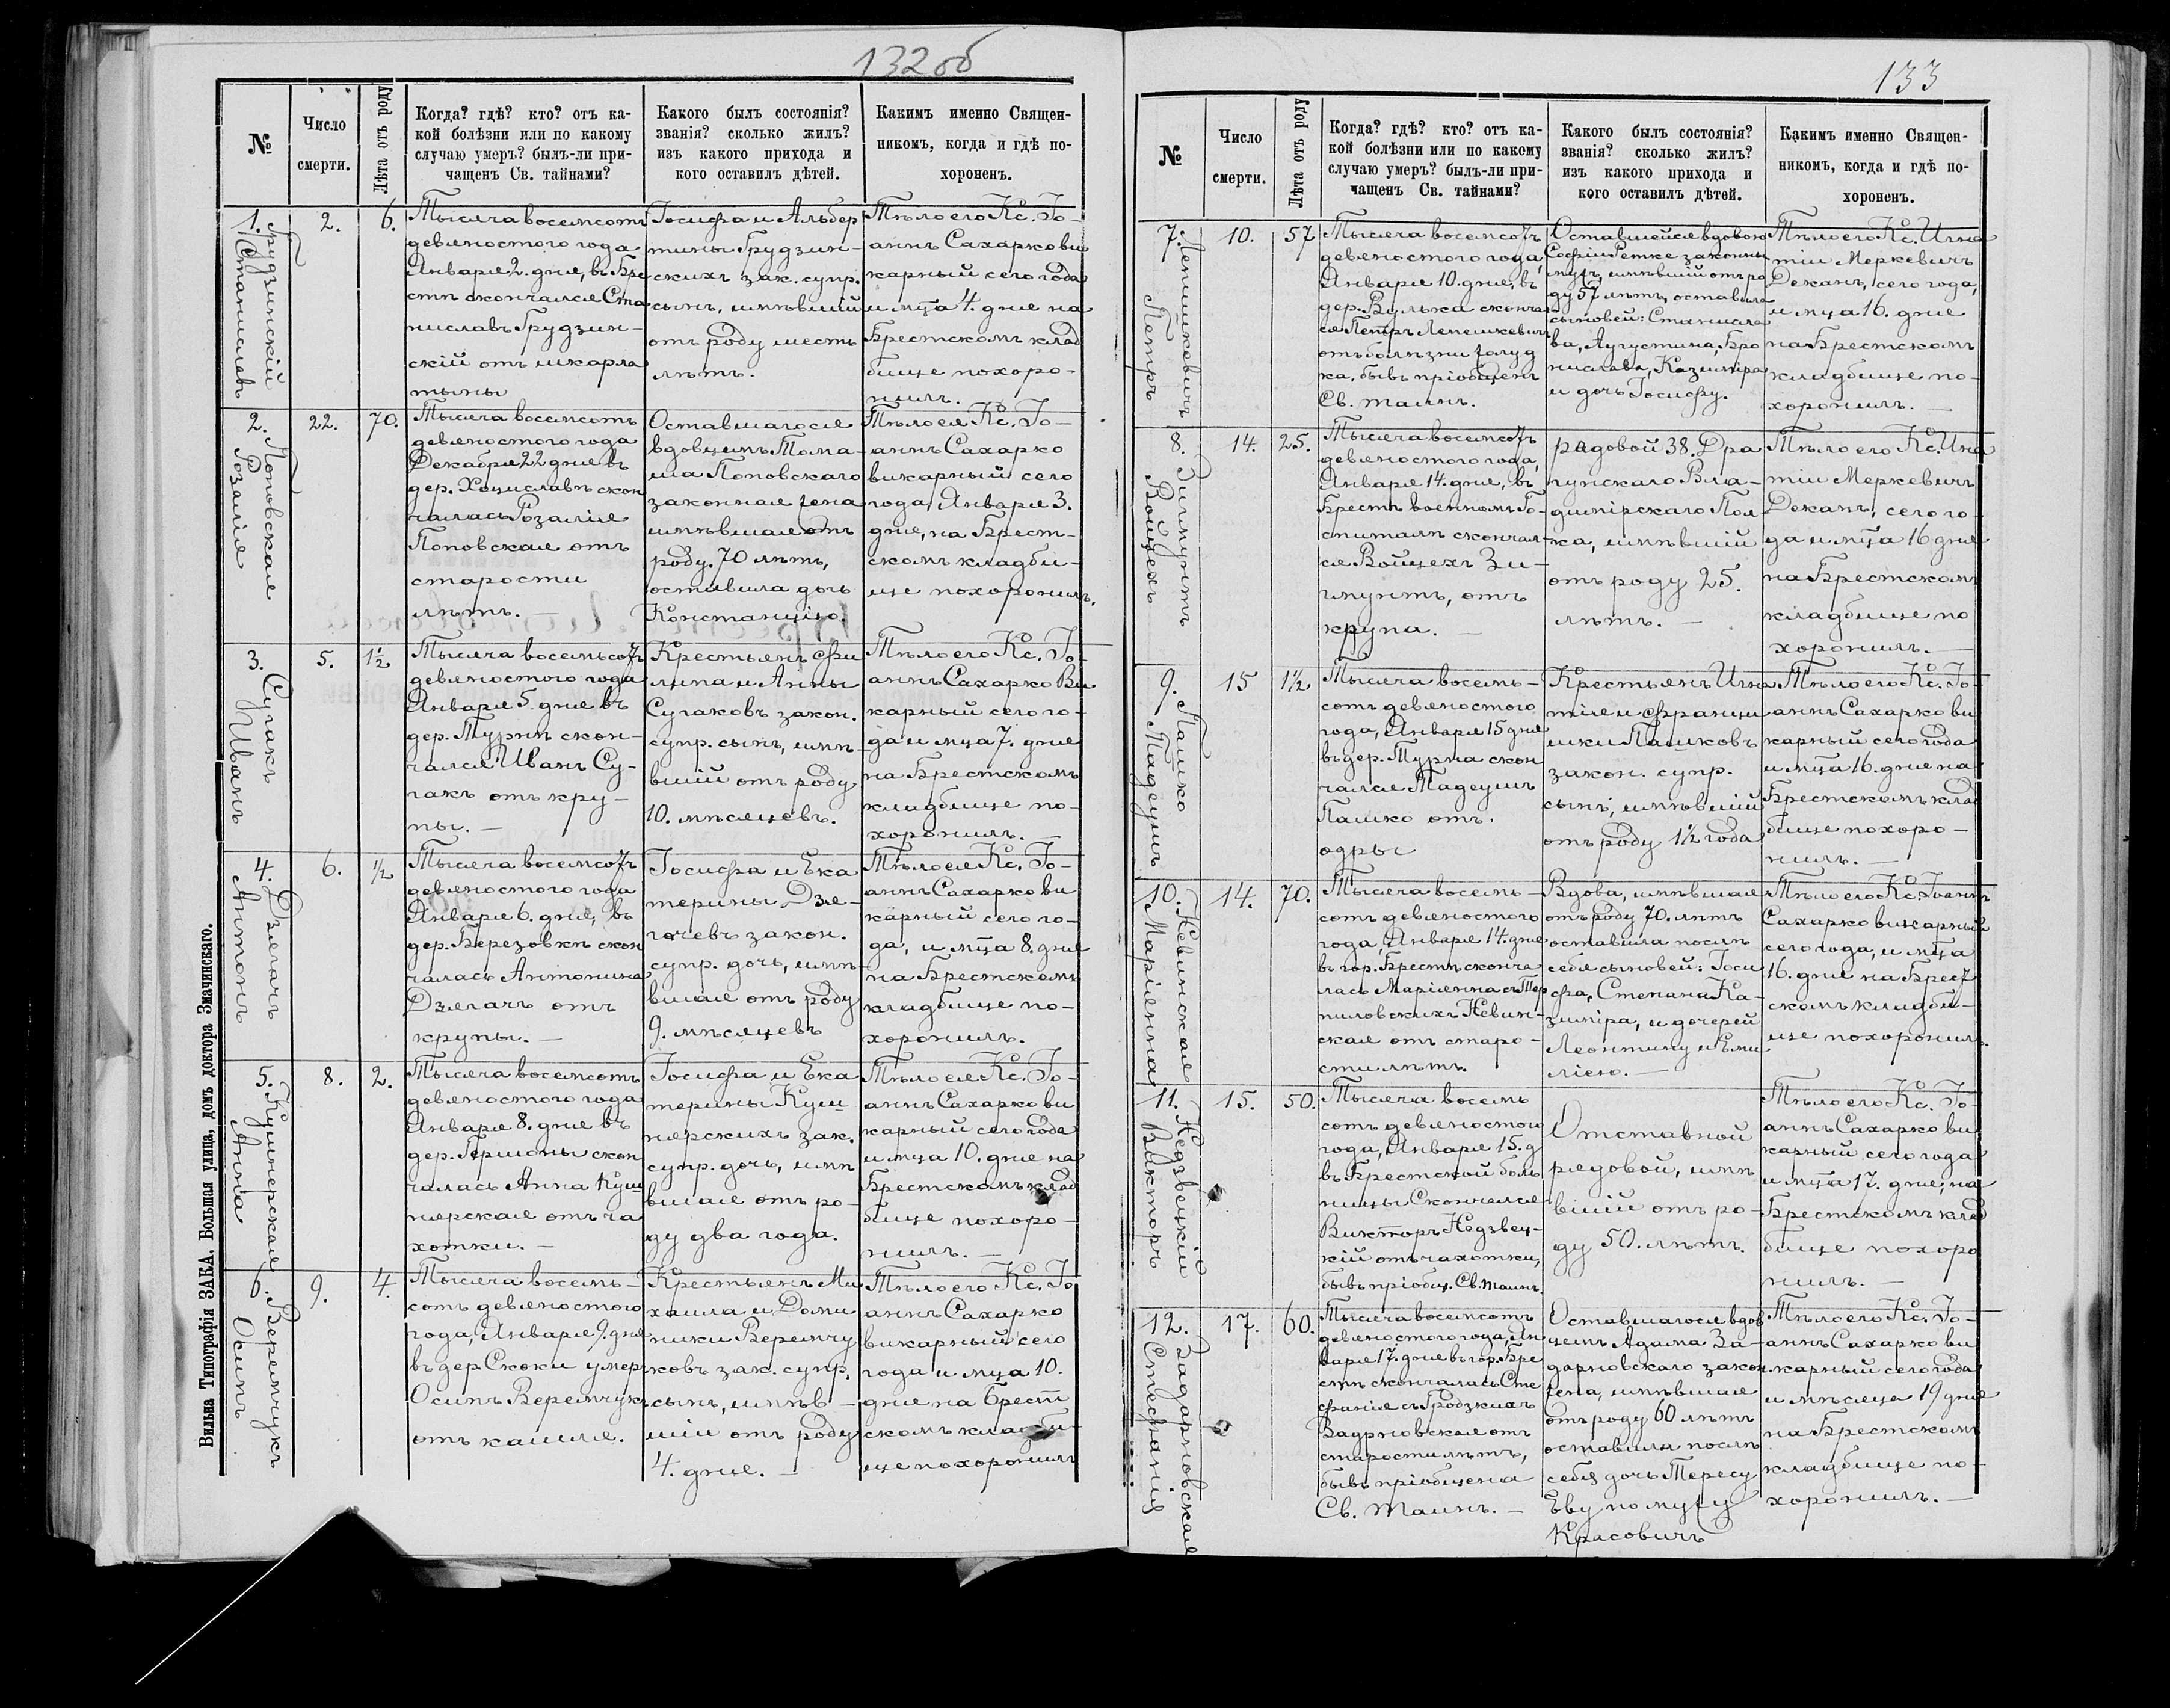 132 об
№
Число
смерти.
Лѣта отъ роду
Когда? гдѣ? кто? отъ ка-
кой болѣзни или по какому
случаю умеръ? былъ-ли при-
чащенъ Св. тайнами?
Какого былъ состоянія?
званія? сколько жилъ?
изъ какого прихода и
кого оставилъ дѣтей.
Какимъ именно Священ-
никомъ, когда и гдѣ по-
хороненъ.
1.
Грудзинскій
Станиславъ
2.
6.
Тысяча восемсотъ
девяностого года
Января 2. дня, въ Бре
стѣ скончался Ста
ниславъ Грудзин-
скій отъ шкарла
тыны
Іосифа и Альбер
тины Грудзин-
скихъ зак. супр.
сынъ, имѣвшій
отъ роду шесть
лѣтъ.
Тѣло его Кс. Іо-
аннъ Сахарко ви
карный сего года
и мца 4. дня на
Брестскомъ клад
бище похоро-
нилъ.
2.
Поповская
Розалія
22.
70.
Тысяча восемсотъ
девяностого года
Декабря 22 дня въ
дер. Хоциславѣ скон
чалась Розалія
Поповская отъ
старости
лѣтъ. —
Оставшагося
вдовцемъ Тома-
ша Поповскаго
законная жена
имѣвшая отъ
роду. 70 лѣтъ,
оставила дочь
Констанцію.
Тѣло ея Кс. Іо-
аннъ Сахарко
викарный сего
года, Января 3.
дня, на Брест-
скомъ кладби-
ще похоронилъ.
3.
Сугакъ
Иванъ
5.
1½
Тысяча восемьсотъ
девяностого года
Января 5. дня въ
дер. Турнѣ скон-
чался Иванъ Су-
гакъ отъ кру-
пы. —
Крестьянъ Фи
липа и Анны
Сугаковъ закон.
супр. сынъ, имѣ-
вшій отъ роду
10. мѣсяцевъ.
Тѣло его Кс. Іо-
аннъ Сахарко Ви
карный сего го-
да и мца 7. дня
на Брестскомъ
кладбище по-
хоронилъ. —
4.
Дзягачъ
Антонъ
6.
½
Тысяча восемсотъ
девяностого года
Января 6. дня, въ
дер. Березовкѣ скон
чалась Антонина
Дзягачъ отъ
крупы. —
Іосифа и Ека
терины Дзя-
гачевъ закон.
супр. дочь, имѣ-
вшая отъ роду
9. мѣсяцевъ
Тѣло ея Кс. Іо-
аннъ Сахарко ви
карный сего го-
да, и мца 8. дня
на Брестскомъ
кладбище по-
хоронилъ.
5.
Кушнерская
Анна
8.
2.
Тысяча восемсотъ
девяностого года
Января 8. дня въ
дер. Гершоны скон
чалась Анна Куш
нярская отъ ча
хотки. —
Іосифа и Ека
терины Куш
нярскихъ зак.
супр. дочь, имѣ
вшая отъ ро-
ду два года.
Тѣло ея Кс. Іо-
аннъ Сахарко ви
карный сего года
и мца 10. дня на
Брестскомъ клад
бище похоро-
нилъ. —
6.
Веремчукъ
Осипъ
9.
4.
Тысяча восемь-
сотъ девяностого
года, Января 9. дня
въ дер Скоки умеръ
Осипъ Веремчукъ
отъ кашля.
Крестьянъ Ми
хаила и Доми
ники Веремчу
ковъ зак. супр.
сынъ, имѣв-
шій отъ роду
4. дня. —
Тѣло его Кс. Іо
аннъ Сахарко
викарный сего
года и мца 10.
дня на Брест
скомъ кладби-
ще похоронилъ
Вильна Типографія ЗАКА, Большая улица, домъ доктора Змачинскаго.
133
№
Число
смерти.
Лѣта отъ роду
Когда? гдѣ? кто? отъ ка-
кой болѣзни или по какому
случаю умеръ? былъ-ли при-
чащенъ Св. тайнами?
Какого былъ состоянія?
званія? сколько жилъ?
изъ какого прихода и
кого оставилъ дѣтей.
Какимъ именно Священ-
никомъ, когда и гдѣ по-
хороненъ.
7.
Лепишкевичъ
Петръ
10.
57
Тысяча восемсотъ
девяностого года,
Января 10. дня, въ
дер. Вулька сконча
ся Петръ Лепешкевичъ
отъ болѣзни желуд
ка, бывъ пріобщенъ
Св. таинъ.
Оставшейся вдовою
Софіи Гетке законны
мужъ, имѣвшій отъ ро
ду 57 лѣтъ, оставила
сыновей: Станисла
ва, Аугустина, Бро
нислава, Казиміра
и дочь Іосифу.
Тѣло его Кс. Игна
тій Меркевичъ
Деканъ, сего года,
и мца 16. дня
на Брестскомъ
кладбище по-
хоронилъ. —
8.
Зигмунтъ
Войцехъ
14.
25.
Тысяча восемсотъ
девяностого года,
Января 14. дня, въ
Брестъ военномъ Го-
спиталѣ скончал-
ся Войцехъ Зи-
гмунтъ, отъ
крупа. —
рядовой 38. Дра
гунскаго Вла-
димірскаго Пол-
ка, имѣвшій
отъ роду 25.
лѣтъ. —
Тѣло его Кс. Игна
тій Меркевичъ
Деканъ, сего го-
да и мца 16 дня
на Брестскомъ
кладбище по
хоронилъ. —
9.
Пашко
Тадеушъ
15
1½
Тысяча восемь-
сотъ девяностого
года, Января 15 дня
въ дер. Турна скон
чался Тадеушъ
Пашко отъ
одры
Крестьянъ Игна
тія и Франци
шки Пашковъ
закон. супр.
сынъ, имѣвшій
отъ роду 1½ года
Тѣло его Кс. Іо-
аннъ Сахарко ви
карный сего года
и мца 16. дня на
Брестскомъ клад
бище похоро-
нилъ. —
10.
Невинская
Маріянна
14.
70.
Тысяча восемь-
сотъ девяностого
года, Января 14. дня
въ гор. Брестѣ сконча
лась Маріянна съ Тер
пиловскихъ Невин-
ская отъ старо-
сти лѣтъ.
Вдова, имѣвшая
отъ роду 70. лѣтъ
оставила послѣ
себя сыновей: Іоси
фа, Степана Ка-
зиміра, и дочерей
Леонтину и Еми
лію. —
Тѣло его Кс. Іоаннъ
Сахарко викарный
сего года, и мца
16. дня на Брест
скомъ кладби-
ще похоронилъ.
11.
Недзвецкій
Викторъ
15.
50.
Тысяча восемь
сотъ девяностого
года, Января 15. д
въ Брестской боль
ницы Скончался
Викторъ Недзвец-
кій отъ чахотки,
бывъ пріобщ. Св. таинъ.
Отставной
рядовой, имѣ
вшій отъ ро-
ду 50. лѣтъ.
Тѣло его Кс. Іо-
аннъ Сахарко ви
карный сего года
и мца 17. дня, на
Брестскомъ клад
бище похоро
нилъ. —
12.
Задарновская
Стефанія
17.
60.
Тысяча восемсотъ
девяностого года, Ян
варя 17. дня въ гор. Бре
стѣ скончалась Сте
фанія съ Гродзкихъ
Задрновская отъ
старости лѣтъ,
бывъ пріобщена
Св. Таинъ. —
Оставшагося вдов
цемъ Адама За-
дарновскаго закон
жена, имѣвшая
отъ роду 60 лѣтъ
оставила послѣ
себя дочь Тересу
Еву по мужу
Красовичъ
Тѣло его Кс. Іо-
аннъ Сахарко ви
карный сего года
и мѣсяца 19 дня
на Брестскомъ
кладбище по-
хоронилъ. —